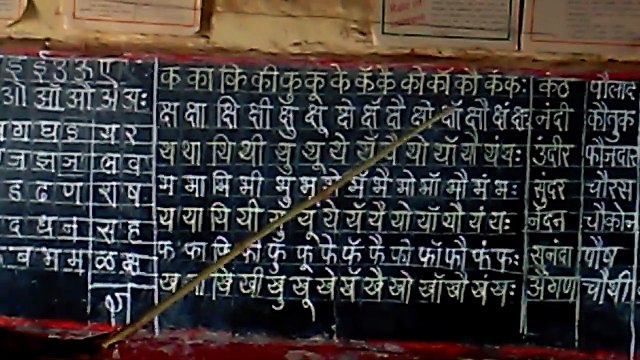 इ ई उ ऊ ए
ओ ऑ औ अं अः
ग घ ड य र
ज झ ञ ल व
ड ढ ण श ष
द ध न स ह
ब भ म ळ क्ष
ज्ञ
क का कि की कु कू के कॅ कै को कॉ कौ कं कः कंठ पौलाद
क्ष क्षा क्षि क्षी क्षु क्षू क्षे क्षॅ क्षै क्षो क्षॉ क्षौ क्षं क्षः नंदी कौतुक
थ था थि थी थु थू थे थॅ थै थो थॉ थौ थं थः उंदीर फौजदार
भ भा भि भी भु भू भे भॅ भै भो भॉ भौ भं भः सुंदर चौरस
य या यि यी यु यू ये यॅ यै यो यॉ यौ यं यः नंदन चौकोन
फ फा फि फी फु फू फे फॅ फै फो फॉ फौ फं फः सुनंदा पौष
ख खा खि खी खु खू खे खॅ खै खो खॉ खौ खं खः अंगण चौथी